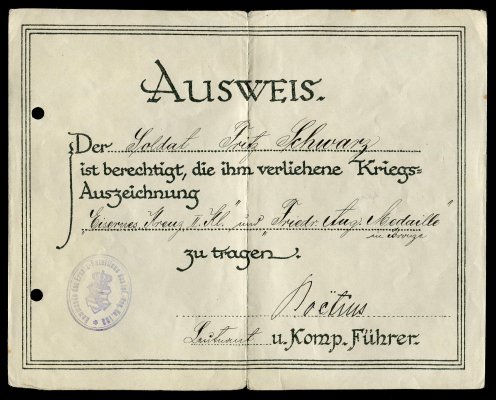 Ausweis.
Der Soldat Fritz Schwarz
ist berechtigt, die ihm verliehene Kriegs-
Auszeichnung
"Eisernes Kreuz II. Kl." und "Friedr. Aug. Medaille"
in Bronze
zu tragen.
Boëtius
Leutnant u. Komp. Führer.